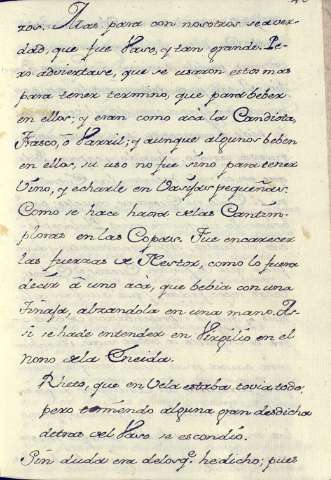 ros. Mas para con nosotros sea ver-
dad, que fue Vaso, y tan grande. Pe-
ro adviertase, que se usaron estos mas
para tener termino, que para beber
en ellos; y eran como acá la Candiota,
Frasco, ò Varril; y aunque algunos beben
en ellos, su uso no fue sino para tener
Vino, y echarle en Vasijas pequeñas.
Como se hace haora de las Cantim-
ploras en las Copas. Fue encarecer
las fuerzas de Nestor, como lo fuera
decir à uno acá, que bebia con una
Tinaja, alzandola en una mano. As-
si se ha de entender en Vergilio en el
nono de la Eneida.
Rheto, que en Vela estaba, ovia todo;
pero temiendo alguna gran desdicha
detras del Vaso se escondio.
Sin duda era de los q.e he dicho; pues